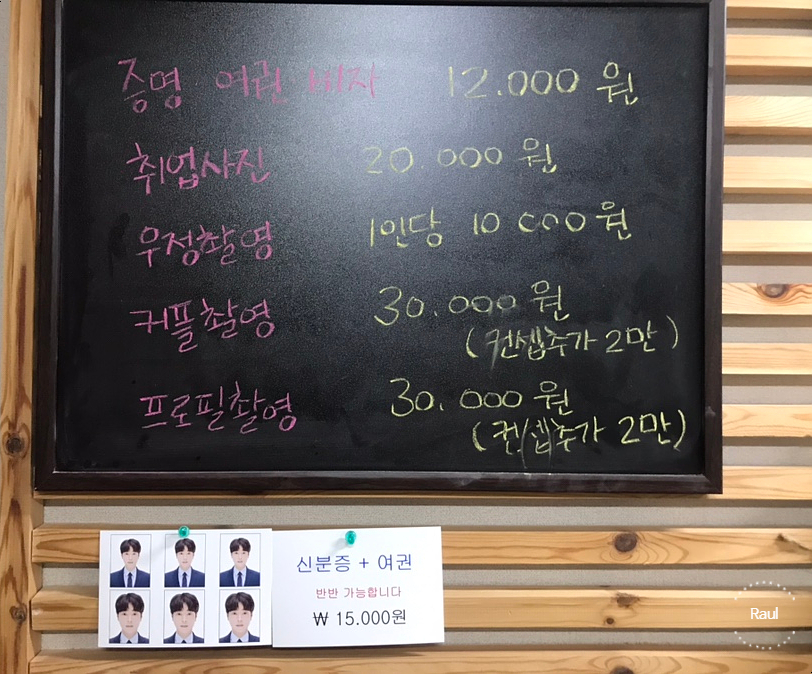 증명 여권 비자 12.000 원
취업사진 20.000 원
우정촬영 1인당 10 000 원
커플촬영 30.000 원
(컨셉추가 2만)
프로필촬영 30.000 원
(컨셉추가 2만)
신분증 + 여권
반반 가능합니다
₩ 15.000원
Raul